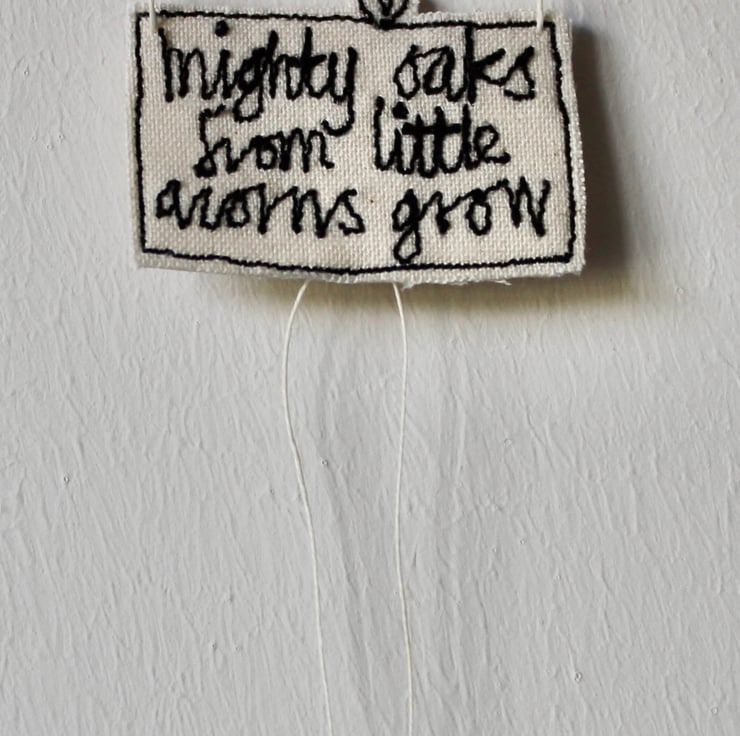 mighty oaks
from little
acorns grow